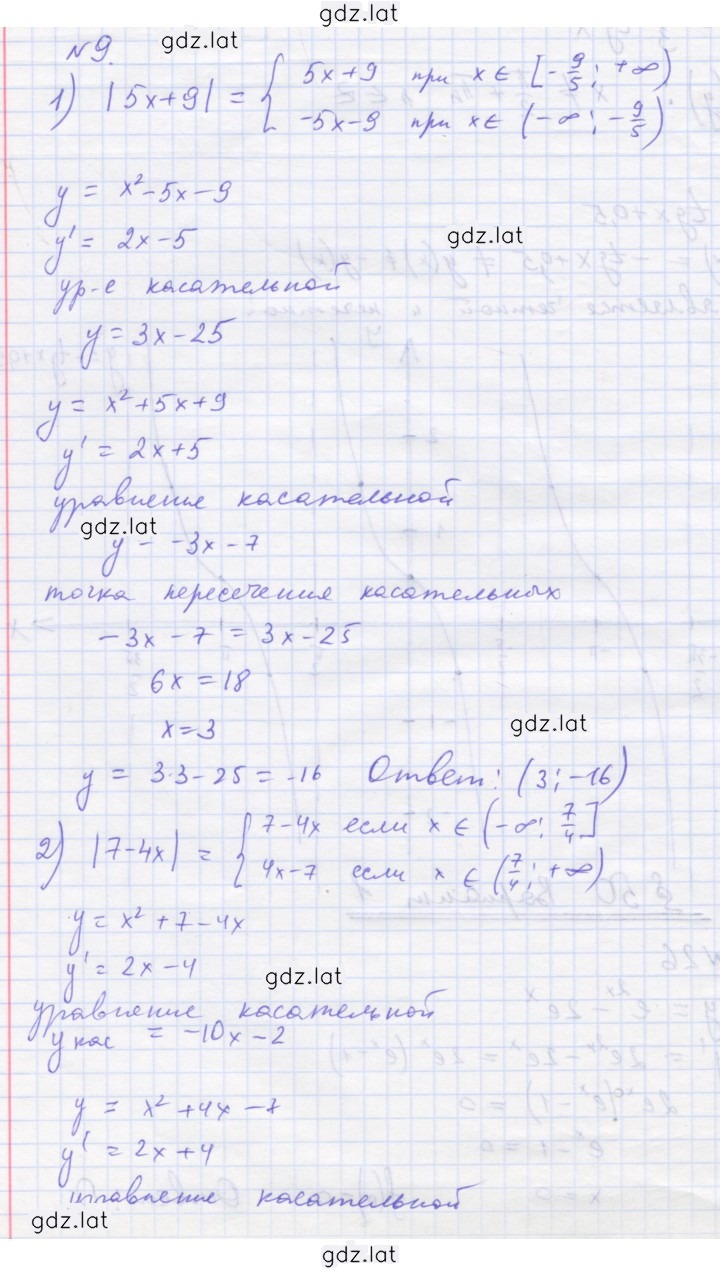 gdz.lat
№9.
gdz.lat
1) |5x+9| = { 5x+9 при x ∈ [-9/5; +∞)
-5x-9 при x ∈ (-∞; -9/5)
y = x²-5x-9
y' = 2x-5
gdz.lat
ур-е касательной
y = 3x-25
y = x²+5x+9
y' = 2x+5
уравнение касательной
gdz.lat
y = -3x-7
точка пересечения касательных
-3x-7 = 3x-25
6x = 18
x=3
gdz.lat
y = 3·3-25 = -16 Ответ: (3; -16)
2) |7-4x| = { 7-4x если x ∈ (-∞; 7/4]
4x-7 если x ∈ (7/4; +∞)
y = x²+7-4x
y' = 2x-4
gdz.lat
уравнение касательной
y кас = -10x-2
y = x²+4x-7
y' = 2x+4
уравнение касательной
gdz.lat
gdz.lat